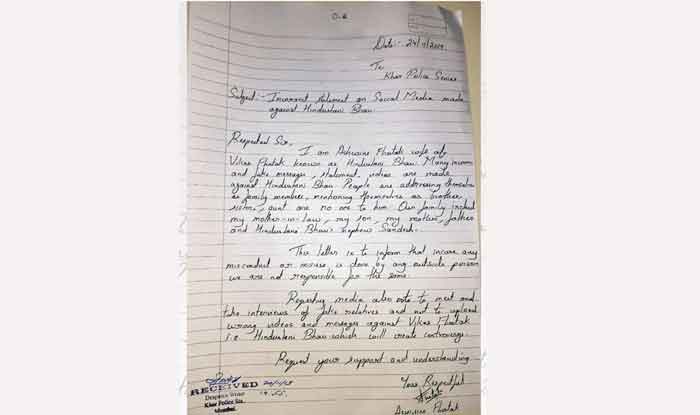 Date:- 24/11/2019
To
Khar Police Senior
Subject:- Incorrect statement on Social Media made
against Hindustani Bhau
Respected Sir,
I am Ashwini Phatak wife of
Vikas Phatak known as Hindustani Bhau. Many
and fake messages, statement, videos are made
against Hindustani Bhau. People are addressing themselves
as family members, mentioning themselves as brother,
sister, aunt are no one to him. Our family includ
my mother-in-law, my son, my mother, father
and Hindustani Bhau's nephew Sandesh.
This letter is to inform that incase any
misconduct or misuse is done by any outside person
we are not responsible for the same.
Requesting media also not to meet and
take interviews of fake relatives and not to upload
wrong videos and messages against Vikas Phatak
i.e. Hindustani Bhau which will create controversy.
Request your support and understanding
Yours Respectful
RECEIVED
Khar Police Stn.
Mumbai.
Phatak